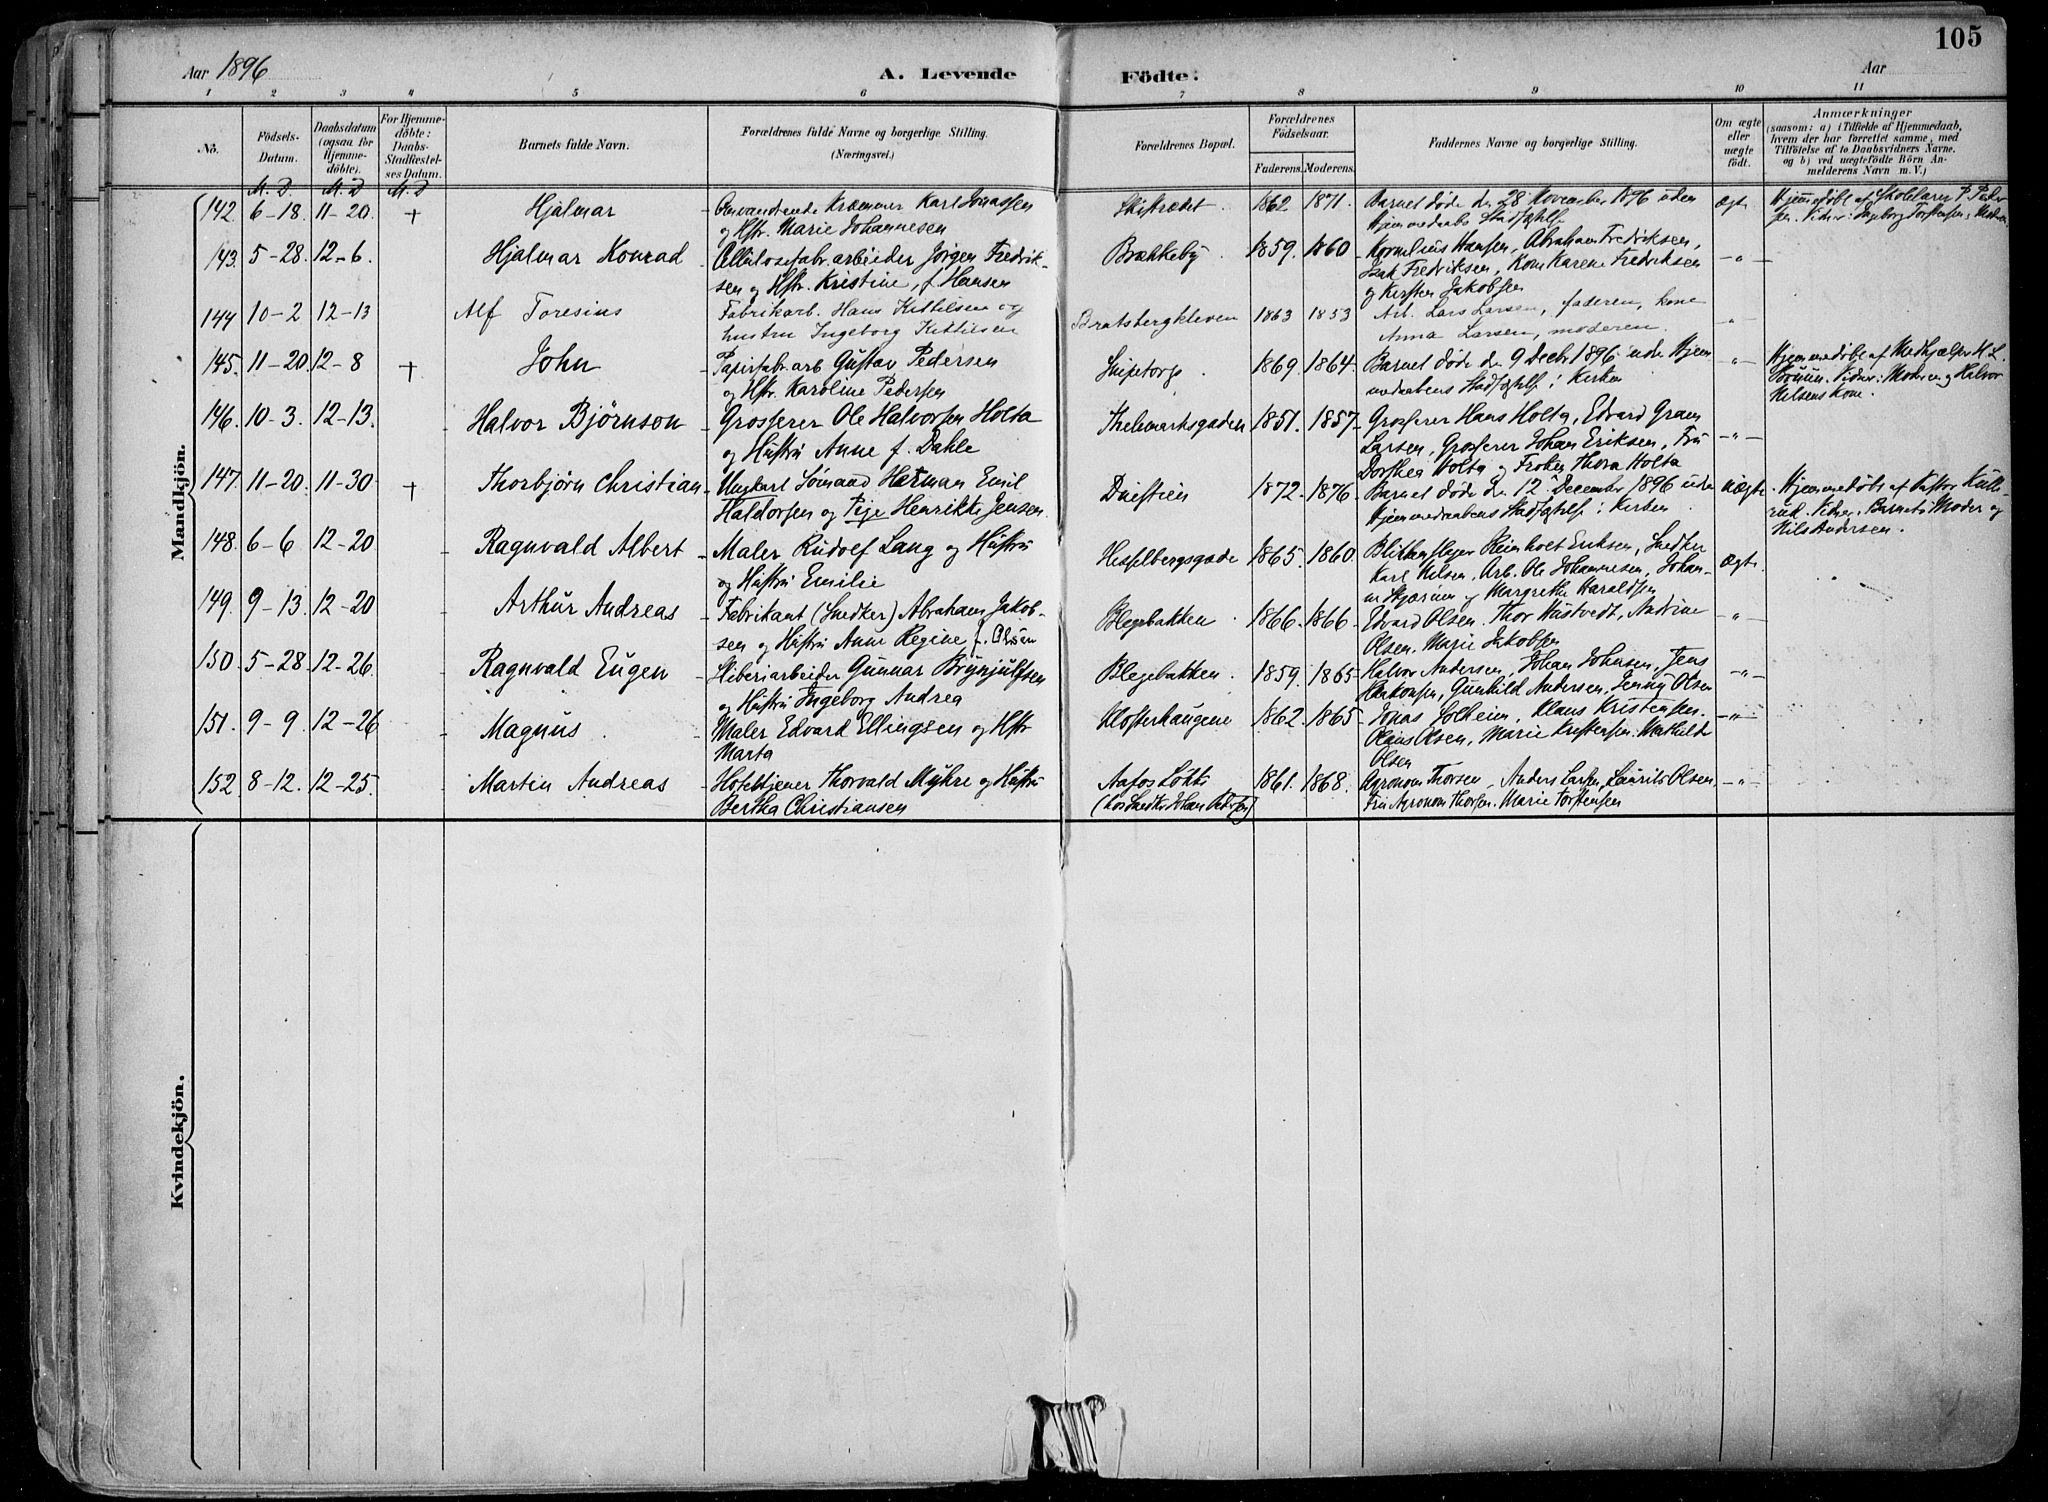 105
Aar 1896 A. Levende Födte. Aar
1 2 3 4 5 6 7 8 9 10 11
No.
Födsels-Datum.
Daabsdatum (ogsaa for Hjemmedöbte).
For Hjemmedöbte: Daabs-Stadfæstelses Datum.
Barnets fulde Navn.
Forældrenes fulde Navne og borgerlige Stilling. (Næringsvei.)
Forældrenes Bopæl.
Forældrenes Födselsaar.
Faderens. Moderens.
Faddernes Navne og borgerlige Stilling.
Om ægte eller uægte födt.
Anmærkninger
(saasom: a) i Tilfælde af Hjemmedaab, hvem der har forrettet samme, med Tilföielse af to Daabsvidners Navne. og b) ved uægtefödte Börn Anmelderens Navn m. V.)
M. D. M. D M. D
Mandkjön.
142. 6-18. 11-20. + Hjalmar
Kræmmer Karl Jonassen
og Hstr. Marie Johannesen
1862 1871. Barnet døde den 28 November 1896 uden
Hjemmedaabs Ægte
Hjemmedøbt af P. Peder-
sen. Vidner: Ingeborg Torstensen, Moderen
143. 5-28. 12-6. Hjalmar Konrad
arbeider Jörgen Fredrik-
sen og Hstr. Kristine, f. Hansen
Brækkeby. 1859. 1860 Kornelius Hansen, Abraham Fredriksen,
Isak Fredriksen, Kone Karene Fredriksen
og Kirsten Jakobsen -"-
144 10-2 12-13 Alf Toresius
Fabrikarb. Hans Kittilsen og
hustru Ingeborg Kittilsen
Bratsbergkleven 1863 1853 Arb. Lars Larsen, faderen, kone
Anna Larsen, moderen. "
145. 11-20 12-8 + John
Papirfabr. arb Gustav Pedersen
og Hstr. Karoline Pedersen
Snipetorp. 1869. 1864. Barnet døde den 9 Decbr. 1896 uden Hjem
medaabens i Kirken "
Hjemmedøbt af Medhjælper H. L.
Vidner: Moderen og Halvor
Nilsens Kone.
146. 10-3. 12-13. - Halvor Björnson
Grosserer Ole Halvorsen Holta
og Hustru Anne f. Dahle
Thelemarksgaden 1851. 1857. Grosserer Hans Holta, Edvard Gram
Larsen, Grosserer Johan Eriksen, Fru
Dorthea Holta og Frøken Thora Holta -"-
147. 11-20. 11-30 + Thorbjörn Christian
Ungkarl Sömand Herman Emil
Haldorsen og Pige Henrikke Jensen.
1872. 1876. Barnet døde den 12 December 1896 uden
Hjemmedaabens i Kirken uægte
Hjemmedøbt af Pastor
Vidner. Barnets Moder og
Nils Andersen.
148. 6-6 12-20 - Ragnvald Albert
Maler Rudolf Lang og Hustru
og Hustru Emilie
Hesselbergsgade 1865. 1860. Eriksen, Snedker
Karl Nilsen, Arb. Ole Johannesen, Johan-
og Margrethe Haraldsen ægte.
149. 9-13. 12-20 Arthur Andreas
Fabrikant (Snedker) Abraham Jakob-
sen og Hustru Anne Regine f. Olsen
Blegebakken. 1866. 1866. Edvard Olsen. Thor Hustvedt, Andrine
Olsen. Marie Jakobsen "
150. 5-28. 12-26. Ragnvald Eugen
Sliberiarbeider Gunnar Brynjulfsen
og Hustru Ingeborg Andrea
Blegebakken. 1859. 1865. Halvor Andersen, Johan Johnsen, Jens
Haakonsen, Gunhild Andersen, Jenny Olsen -"-
151. 9-9. 12-26 - Magnus.
Maler Edvard Ellingsen og Hstr
Marta
Klosterhaugene 1862. 1865. Jonas Solheim, Klaus Kristensen.
Olaus Olsen, Marie Kristensen. Mathilde
Olsen -"-
152 8-12. 12-25. - Martin Andreas
Hotelstjener Thorvald Myhre og Hustru
Bertha Christiansen
Aafos Løkke
(hos Snedker Johan Pedersen) 1861. 1868. Agronom Thorsen, Anders Larsen, Laurits Olsen,
Fru Agronom Thorsen. Marie Torstensen -"-
Kvindekjön.